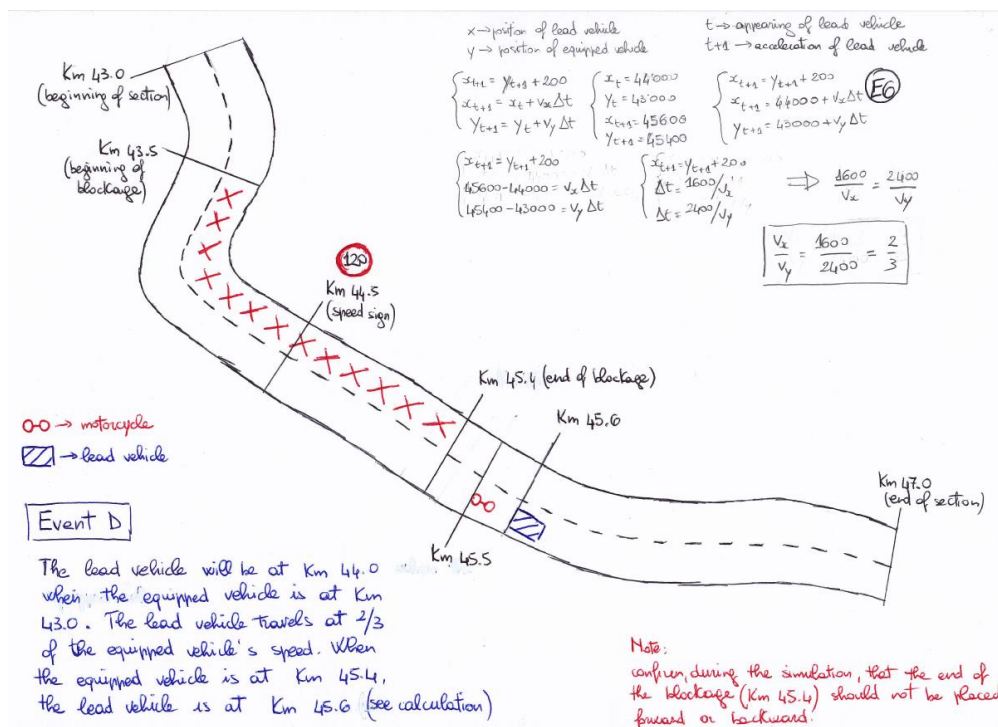 x → position of lead vehicle
y → position of equipped vehicle
t → appearing of lead vehicle
t+1 → acceleration of lead vehicle
x_{t+1} = y_{t+1} + 200
x_{t+1} = x_t + v_x Δt
y_{t+1} = y_t + v_y Δt
x_t = 44000
y_t = 43000
x_{t+1} = 45600
y_{t+1} = 45400
x_{t+1} = y_{t+1} + 200
x_{t+1} = 44000 + v_x Δt
y_{t+1} = 43000 + v_y Δt
E6
x_{t+1} = y_{t+1} + 200
45600 - 44000 = v_x Δt
45400 - 43000 = v_y Δt
x_{t+1} = y_{t+1} + 200
Δt = 1600/v_x
Δt = 2400/v_y
⇒ 1600/v_x = 2400/v_y
v_x/v_y = 1600/2400 = 2/3
Km 43.0
(beginning of section)
Km 43.5
(beginning of
blockage)
120
Km 44.5
(speed sign)
Km 45.4 (end of blockage)
Km 45.6
Km 45.5
Km 47.0
(end of section)
→ motorcycle
→ lead vehicle
Event D
The lead vehicle will be at Km 44.0
when the equipped vehicle is at Km
43.0. The lead vehicle travels at 2/3
of the equipped vehicle's speed. When
the equipped vehicle is at Km 45.4,
the lead vehicle is at Km 45.6 (see calculation)
Note:
confirm, during the simulation, that the end of
the blockage (Km 45.4) should not be placed
forward or backward.